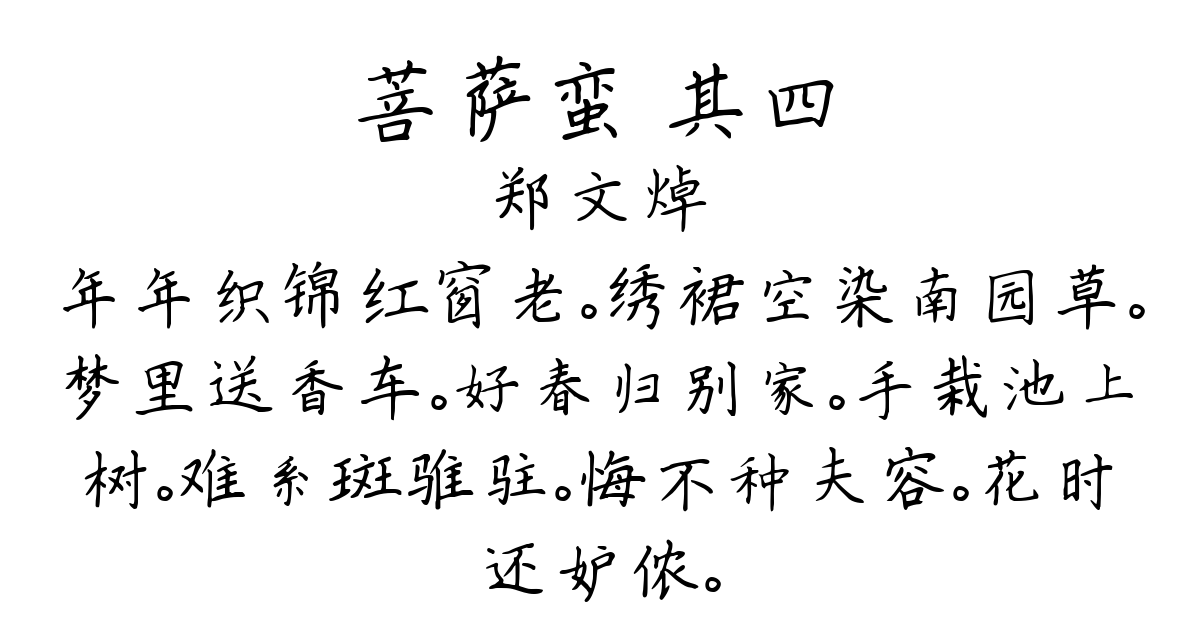 菩萨蛮 其四
郑文焯
年年织锦红窗老。绣裙空染南园草。
梦里送香车。好春归别家。手栽池上
树。难系斑骓驻。悔不种夫容。花时
还妒侬。